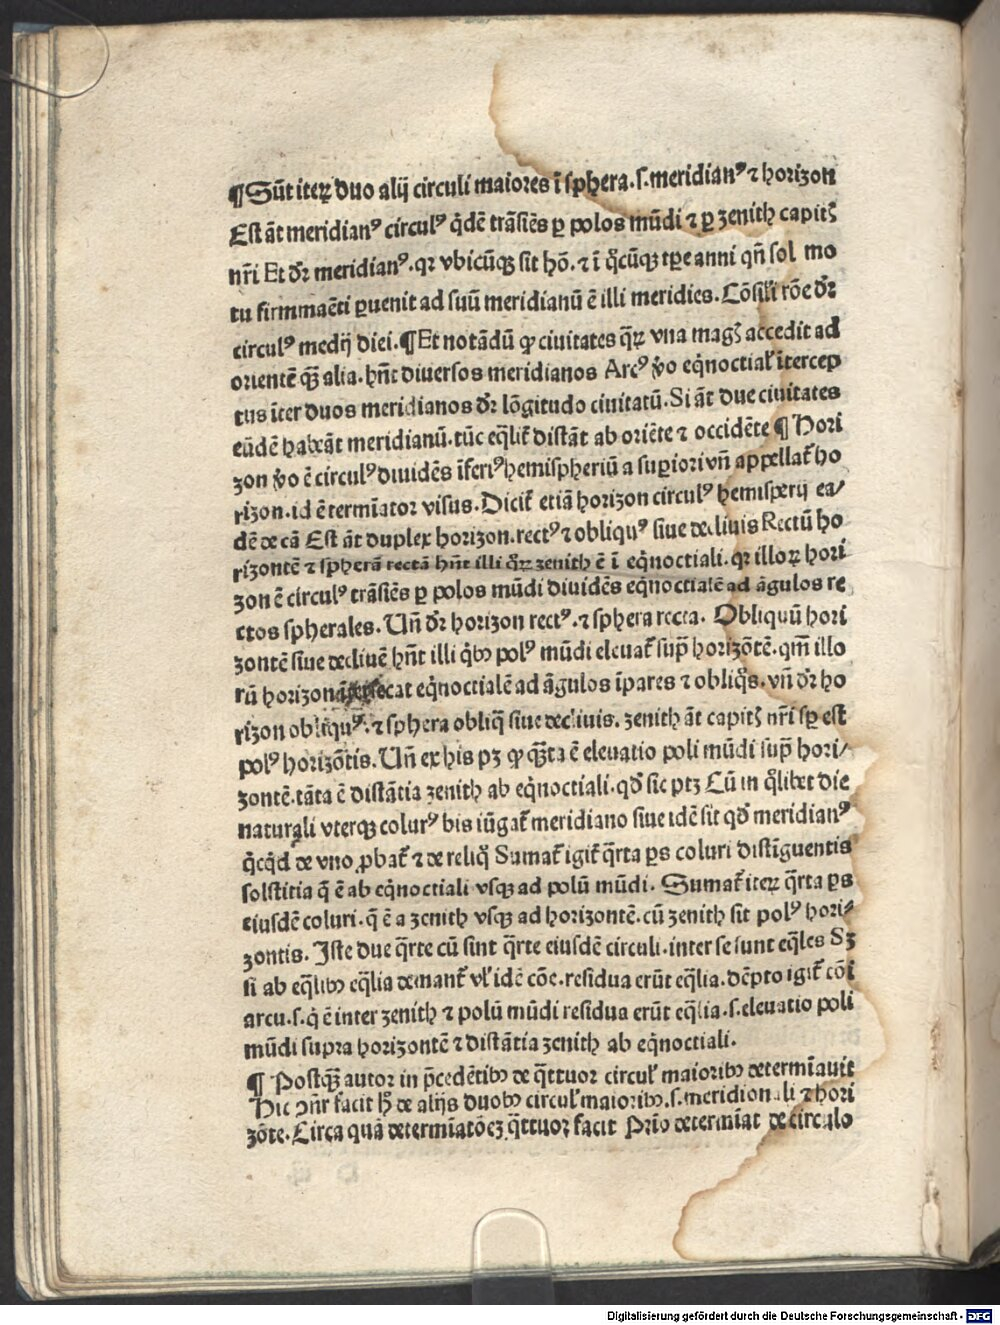 ¶Sũt iteꝝ duo alij circuli maiores ĩ sphera.s.meridianꝰ ⁊ horizon
Est ãt meridianꝰ circulꝰ q̇dẽ trãsiẽs ꝑ polos mũdi ⁊ ꝑ zenith capitꝭ
nr̃i Et dr̃ meridianꝰ.qꝛ vbicũqꝫ sit hõ.⁊ ĩ q̊cũqꝫ tp̃e anni qñ sol mo
tu firmmaẽti ꝑuenit ad suũ meridianũ ẽ illi meridies. Cõsili rõe dr̃
circulꝰ medij diei.¶Et notãdũ ꝙ ciuitates q̃ꝝ vna magꝭ accedit ad
orientẽ qꝫ̃ alia.hñt diuersos meridianos Arcꝰ v̊o eq̇noctial̃ ĩtercep
tus ĩter duos meridianos dr̃ lõgitudo ciuitatũ.Si ãt due ciuitates
eũdẽ habeãt meridianũ.tũc eq̃lit̃ distãt ab oriẽte ⁊ occidẽte ¶Hori
zon v̊o ẽ circulꝰ diuidẽs ĩferiꝰ hemispheriũ a superiori vñ appellat̃ ho
rizon.id ẽ termĩator visus.Dicit̃ etiã horizon circulꝰ hemisperij ea/
dẽ de cã Est ãt duplex horizon.rectꝰ ⁊ obliquꝰ siue decliuis Rectũ ho
rizontẽ ⁊ spherã rectã hñt illi q̊ꝝ zenith ẽ ĩ eq̇noctiali.qꝛ illoꝝ hori
zon ẽ circulꝰ trãsiẽs ꝑ polos mũdi diuidẽs eq̇noctialẽ ad ãgulos re
ctos spherales. Uñ dr̃ horizon rectꝰ.⁊ sphera recta. Obliquũ hori
zontẽ siue decliuẽ hñt illi q̇bꝰ polꝰ mũdi eleuat̃ sup̃ horizõtẽ.qm̃ illo
rũ horizon intersecat eq̇noctialẽ ad ãgulos ĩpares ⁊ obliq̊s.vñ dr̃ ho
rizon obliquꝰ.⁊ sphera obliq̃ siue decliuis. zenith ãt capitꝭ nr̃i sꝑ est
polꝰ horizõtis.Uñ ex his pꝫ ꝙ qꝫ̃ta ẽ eleuatio poli mũdi sup̃ hori/
zontẽ.tãta ẽ distãtia zenith ab eq̇noctiali.qđ sic ptꝫ Cũ in q̊libet die
naturali vterqꝫ colurꝰ bis iũgat̃ meridiano siue idẽ sit qđ meridianꝰ
q̇cq̇d de vno ꝓbat̃ ⁊ de reliq̊ Sumat̃ igit̃ q̃rta ꝑs coluri distĩguentis
solstitia q̃ ẽ ab eq̇noctiali vsqꝫ ad polũ mũdi. Sumat̃ iteꝝ q̃rta ꝑs
eiusdẽ coluri.q̃ ẽ a zenith vsqꝫ ad horizontẽ.cũ zenith sit polꝰ hori/
zontis. Iste due q̃rte cũ sint q̃rte eiusdẽ circuli.inter se sunt eq̃les Sꝫ
si ab eq̃libꝰ eq̃lia demant̃ vl̃ idẽ cõe.residua erũt eq̃lia.dẽpto igit̃ cõi
arcu.s.q̇ ẽ inter zenith ⁊ polũ mũdi residua erũt eq̃lia.s.eleuatio poli
mũdi supra horizontẽ ⁊ distãtia zenith ab eq̇noctiali.
¶ Postqꝫ̃ autor in p̃cedẽtibꝰ de q̃ttuor circul̃ maioribꝰ determĩauit
Hic ꝯñr facit hͦ de alijs duobꝰ circul̃ maioribꝰ.s.meridionali ⁊ hori
zõte.Circa quã determĩatõeꝫ q̃ttuor facit Prĩo determĩat de circulo
Digitalisierung gefördert durch die Deutsche Forschungsgemeinschaft - DFG